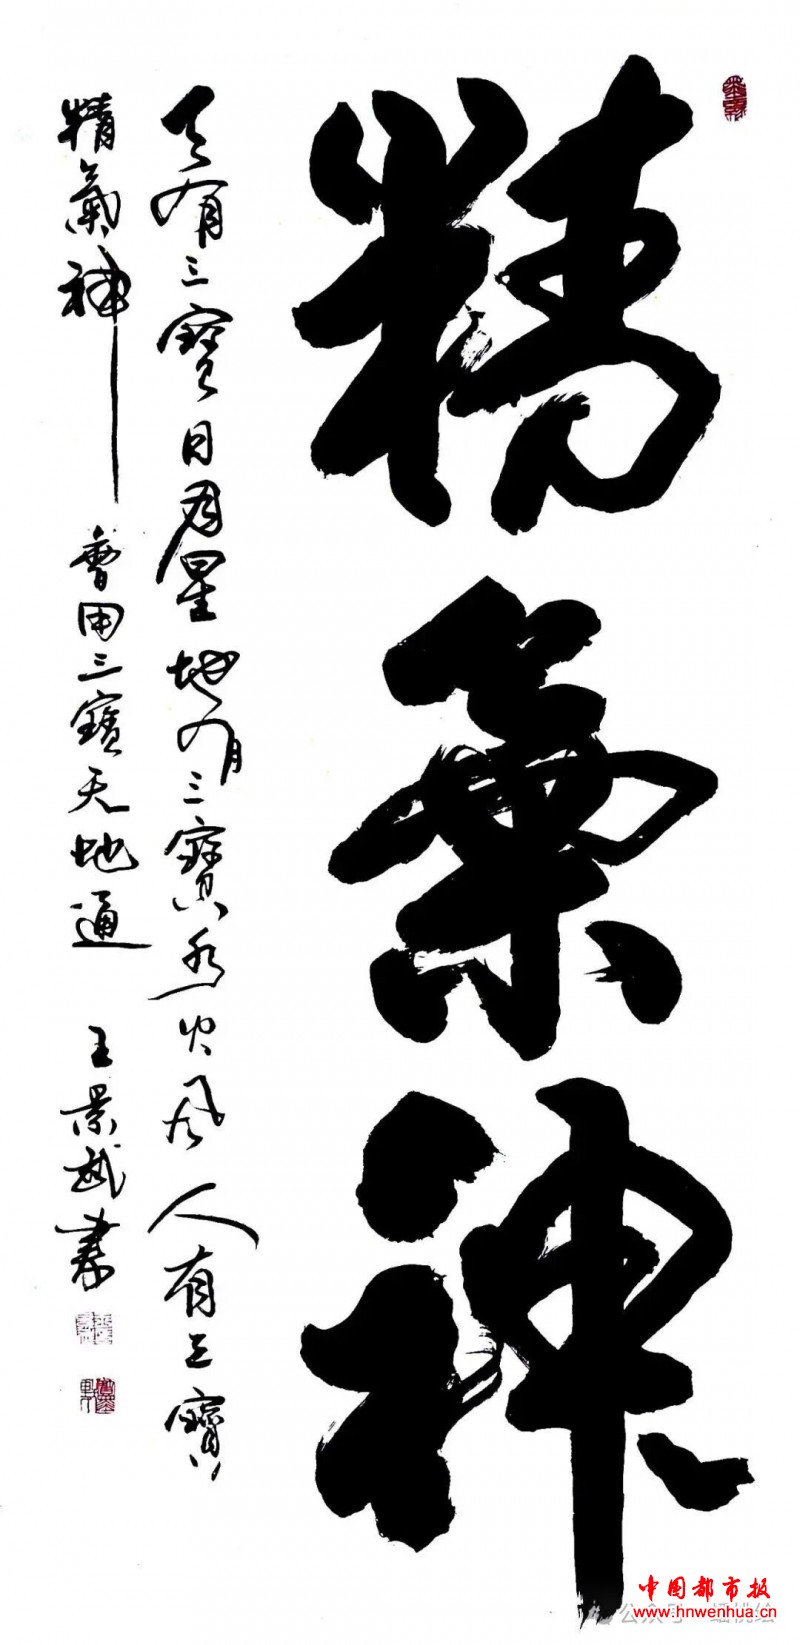 精氣神
天有三寶日月星地有三寶水火風人有三寶
精氣神 會用三寶天地通 王景武書
中国都市报
www.hnwenhua.cn